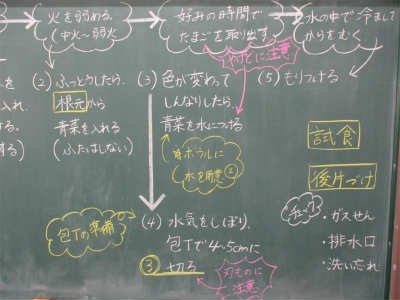 火を弱める
(中火〜弱火)
好みの時間で
たまごを取り出す
水の中で冷まして
からをむく
やけどに注意
(2) ふっとうしたら、
根元から
青菜を入れる
(ふたはしない)
(3) 色が変わって
しんなりしたら、
青菜を水につける
水を用意②
(5) もりつける
試食
後片づけ
チェック
・ガスせん
・排水口
・洗い忘れ
包丁の準備
(4) 水気をしぼり、
包丁で4〜5cmに
③切る
刃ものに
注意
を
入れ
る。
する)